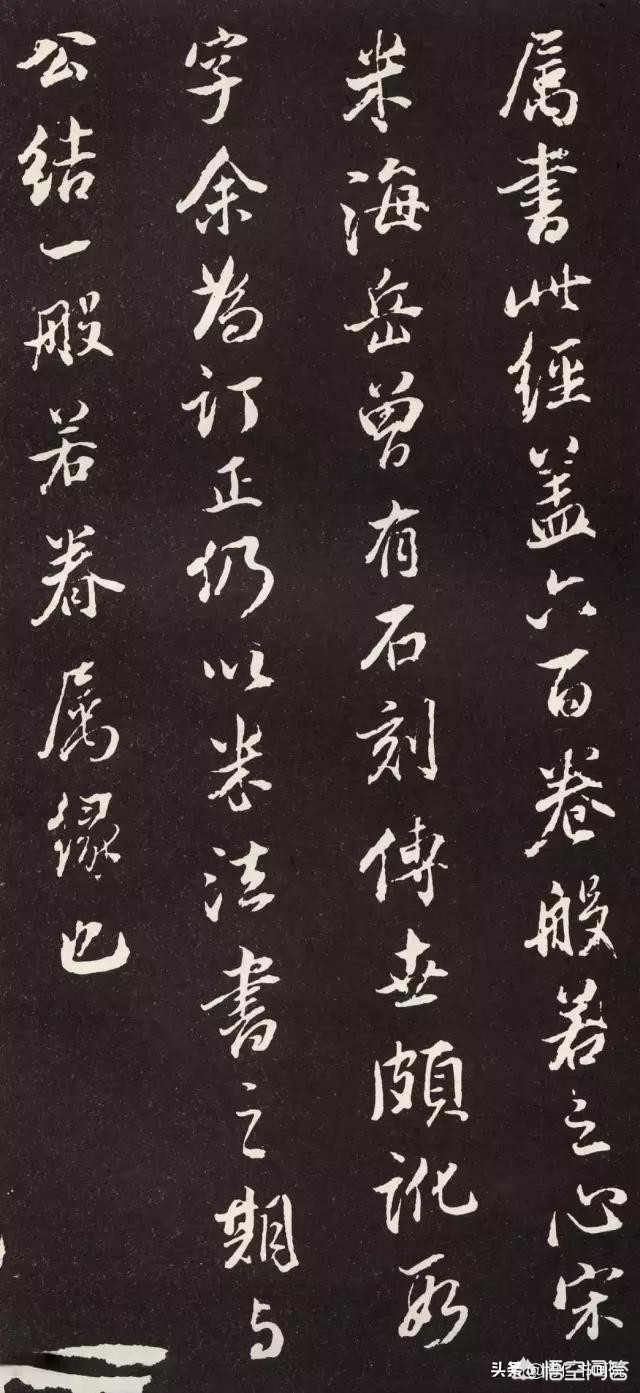 属書此經蓋六百卷般若之心宋
米海岳曾有石刻傳世頗訛數
字余為訂正仍以米法書之期与
公結一般若眷属緣也
悟空问答